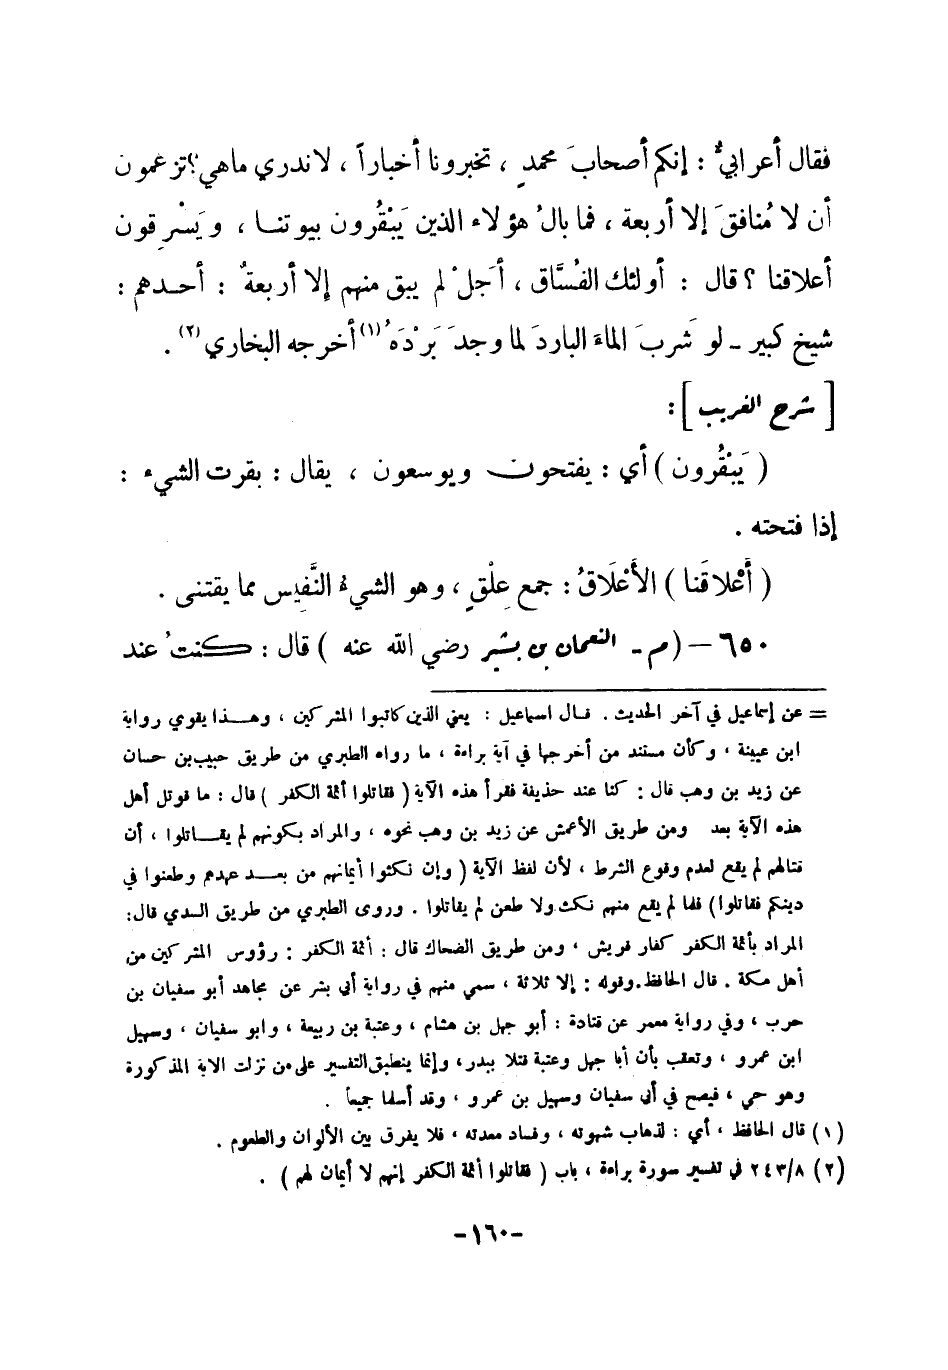 فقال أعرابيٌّ : إنكم أصحابَ محمدٍ ، تخبرونا أخباراً ، لا ندري ماهي ؟ تزعمون
أن لا مُنافقَ إلا أربعة ، فما بالُ هؤلاء الذين يَبْقُرون بيوتنـا ، ويَسْرِقون
أعلاقنا ؟ قال : أولئك الفُسَّاق ، أجَلْ لم يبق منهم إلا أربعةٌ : أحـدهم :
شيخ كبير ـ لو شَربَ الماءَ الباردَ لما وجدَ بَرْدَهُ (١) أخرجه البخاري (٢) .
[ شرح الغريب ] :
( يَبْقُرون ) أي : يفتحون ويوسعون ، يقال : بقرت الشيء :
إذا فتحته .
( أَعْلاقَنا ) الأَعْلَاقُ : جمع عِلْقٍ ، وهو الشيءُ النَّفِيس مما يقتنى .
٦٥٠ – ( م ـ النعمان بن بشير رضي الله عنه ) قال : كنتُ عند
= عن إسماعيل في آخر الحديث . قـال اسماعيل : يعني الذين كاتبوا المشركين ، وهـذا يقوي رواية
ابن عيينة ، وكأن مستند من أخرجها في آية براءة ، ما رواه الطبري من طريق حبيب بن حسان
عن زيد بن وهب قال : كنا عند حذيفة فقرأ هذه الآية ( فقاتلوا أئمة الكفر ) قال : ما قوتل أهل
هذه الآية بعد ومن طريق الأعمش عن زيد بن وهب نحوه ، والمراد بكونهم لم يقـاتلوا ، أن
قتالهم لم يقع لعدم وقوع الشرط ، لأن لفظ الآية ( وإن نكثوا أيمانهم من بعـد عهدم وطعنوا في
دينكم فقاتلوا ) فلما لم يقع منهم نكث ولا طعن لم يقاتلوا . وروى الطبري من طريق السدي قال :
المراد بأئمة الكفر كفار قريش ، ومن طريق الضحاك قال : أئمة الكفر : رؤوس المشركين من
أهل مكة . قال الحافظ . وقوله : إلا ثلاثة ، سمي منهم في رواية أبي بشر عن مجاهد أبو سفيان بن
حرب ، وفي رواية معمر عن قتادة : أبو جهل بن هشام ، وعتبة بن ربيعة ، وابو سفيان ، وسهيل
ابن عمرو ، وتعقب بأن أبا جهل وعتبة قتلا ببدر ، وإنما ينطبق التفسير على من نزلت الاية المذكورة
وهو حي ، فيصح في أبي سفيان وسهيل بن عمرو ، وقد أسلما جميعاً .
(١) قال الحافظ ، أي : لذهاب شهوته ، وفساد معدته ، فلا يفرق بين الألوان والطعوم .
(٢) ٢٤٣/٨ في تفسير سورة براءة ، باب ( فقاتلوا أئمة الكفر إنهم لا أيمان لهم ) .
-١٦٠-